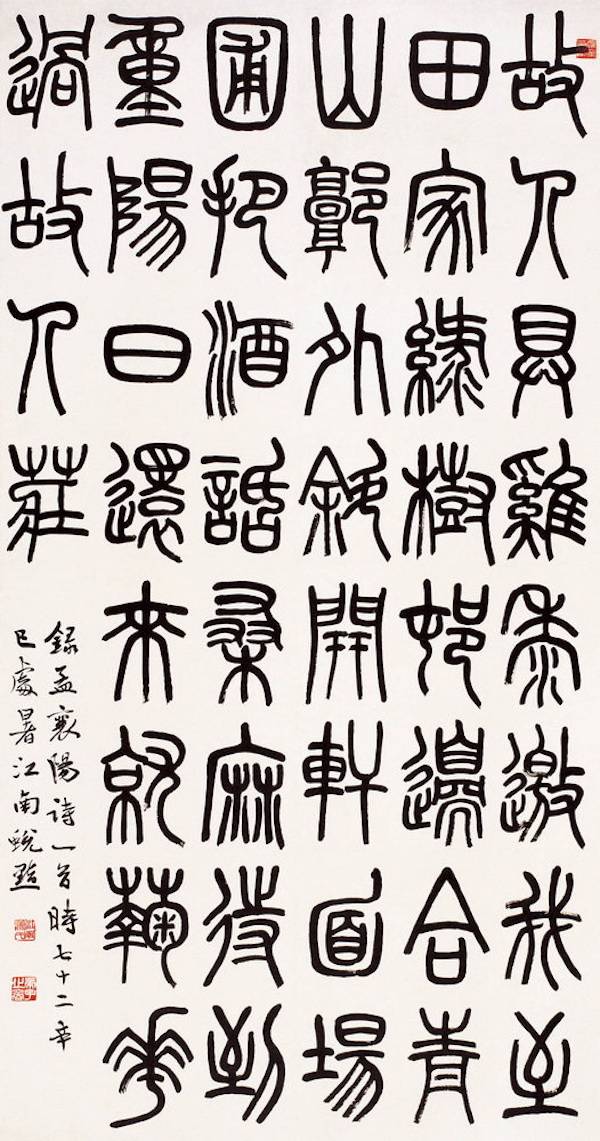 故人具雞黍邀我至
田家綠樹邨邊合青
山郭外斜開軒面場
圃把酒話桑麻待到
重陽日還來就菊花
過故人莊
錄孟襄陽詩一首時七十二辛
巳處暑江南蛻